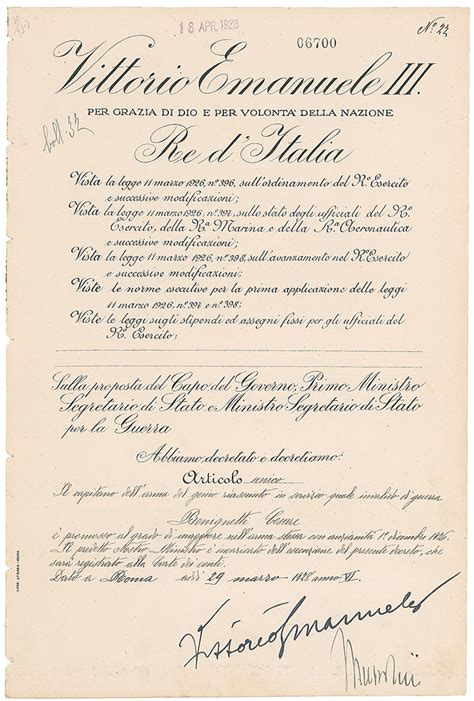 18 APR. 1928
06700
N.º 22
Vittorio Emanuele III.
PER GRAZIA DI DIO E PER VOLONTÀ DELLA NAZIONE
boll. 32
Re d'Italia
Vista la legge 11 marzo 1926, nº 396, sull'ordinamento del Rº Esercito
e successive modificazioni;
Vista la legge 11 marzo 1926, nº 397, sullo stato degli ufficiali del Rº
Esercito, della Rª Marina e della Rª Aeronautica
e successive modificazioni;
Vista la legge 11 marzo 1926, nº 398, sull'avanzamento nel Rº Esercito
e successive modificazioni;
Viste le norme esecutive per la prima applicazione delle leggi
11 marzo 1926, nº 397 e nº 398;
Viste le leggi sugli stipendi ed assegni fissi per gli ufficiali del
Rº Esercito;
Sulla proposta del Capo del Governo, Primo Ministro
Segretario di Stato e Ministro Segretario di Stato
per la Guerra
Abbiamo decretato e decretiamo:
Articolo unico
Il capitano dell'arma del genio riassunto in servizio quale invalido di guerra
Benignetti Cesare
è promosso al grado di maggiore nell'arma stessa con anzianità 1º dicembre 1926.
Il predetto Nostro Ministro è incaricato dell'esecuzione del presente decreto, che
sarà registrato alla Corte dei conti.
Dato a Roma addì 29 marzo 1928 anno VI
Vittorio Emanuele
Mussolini